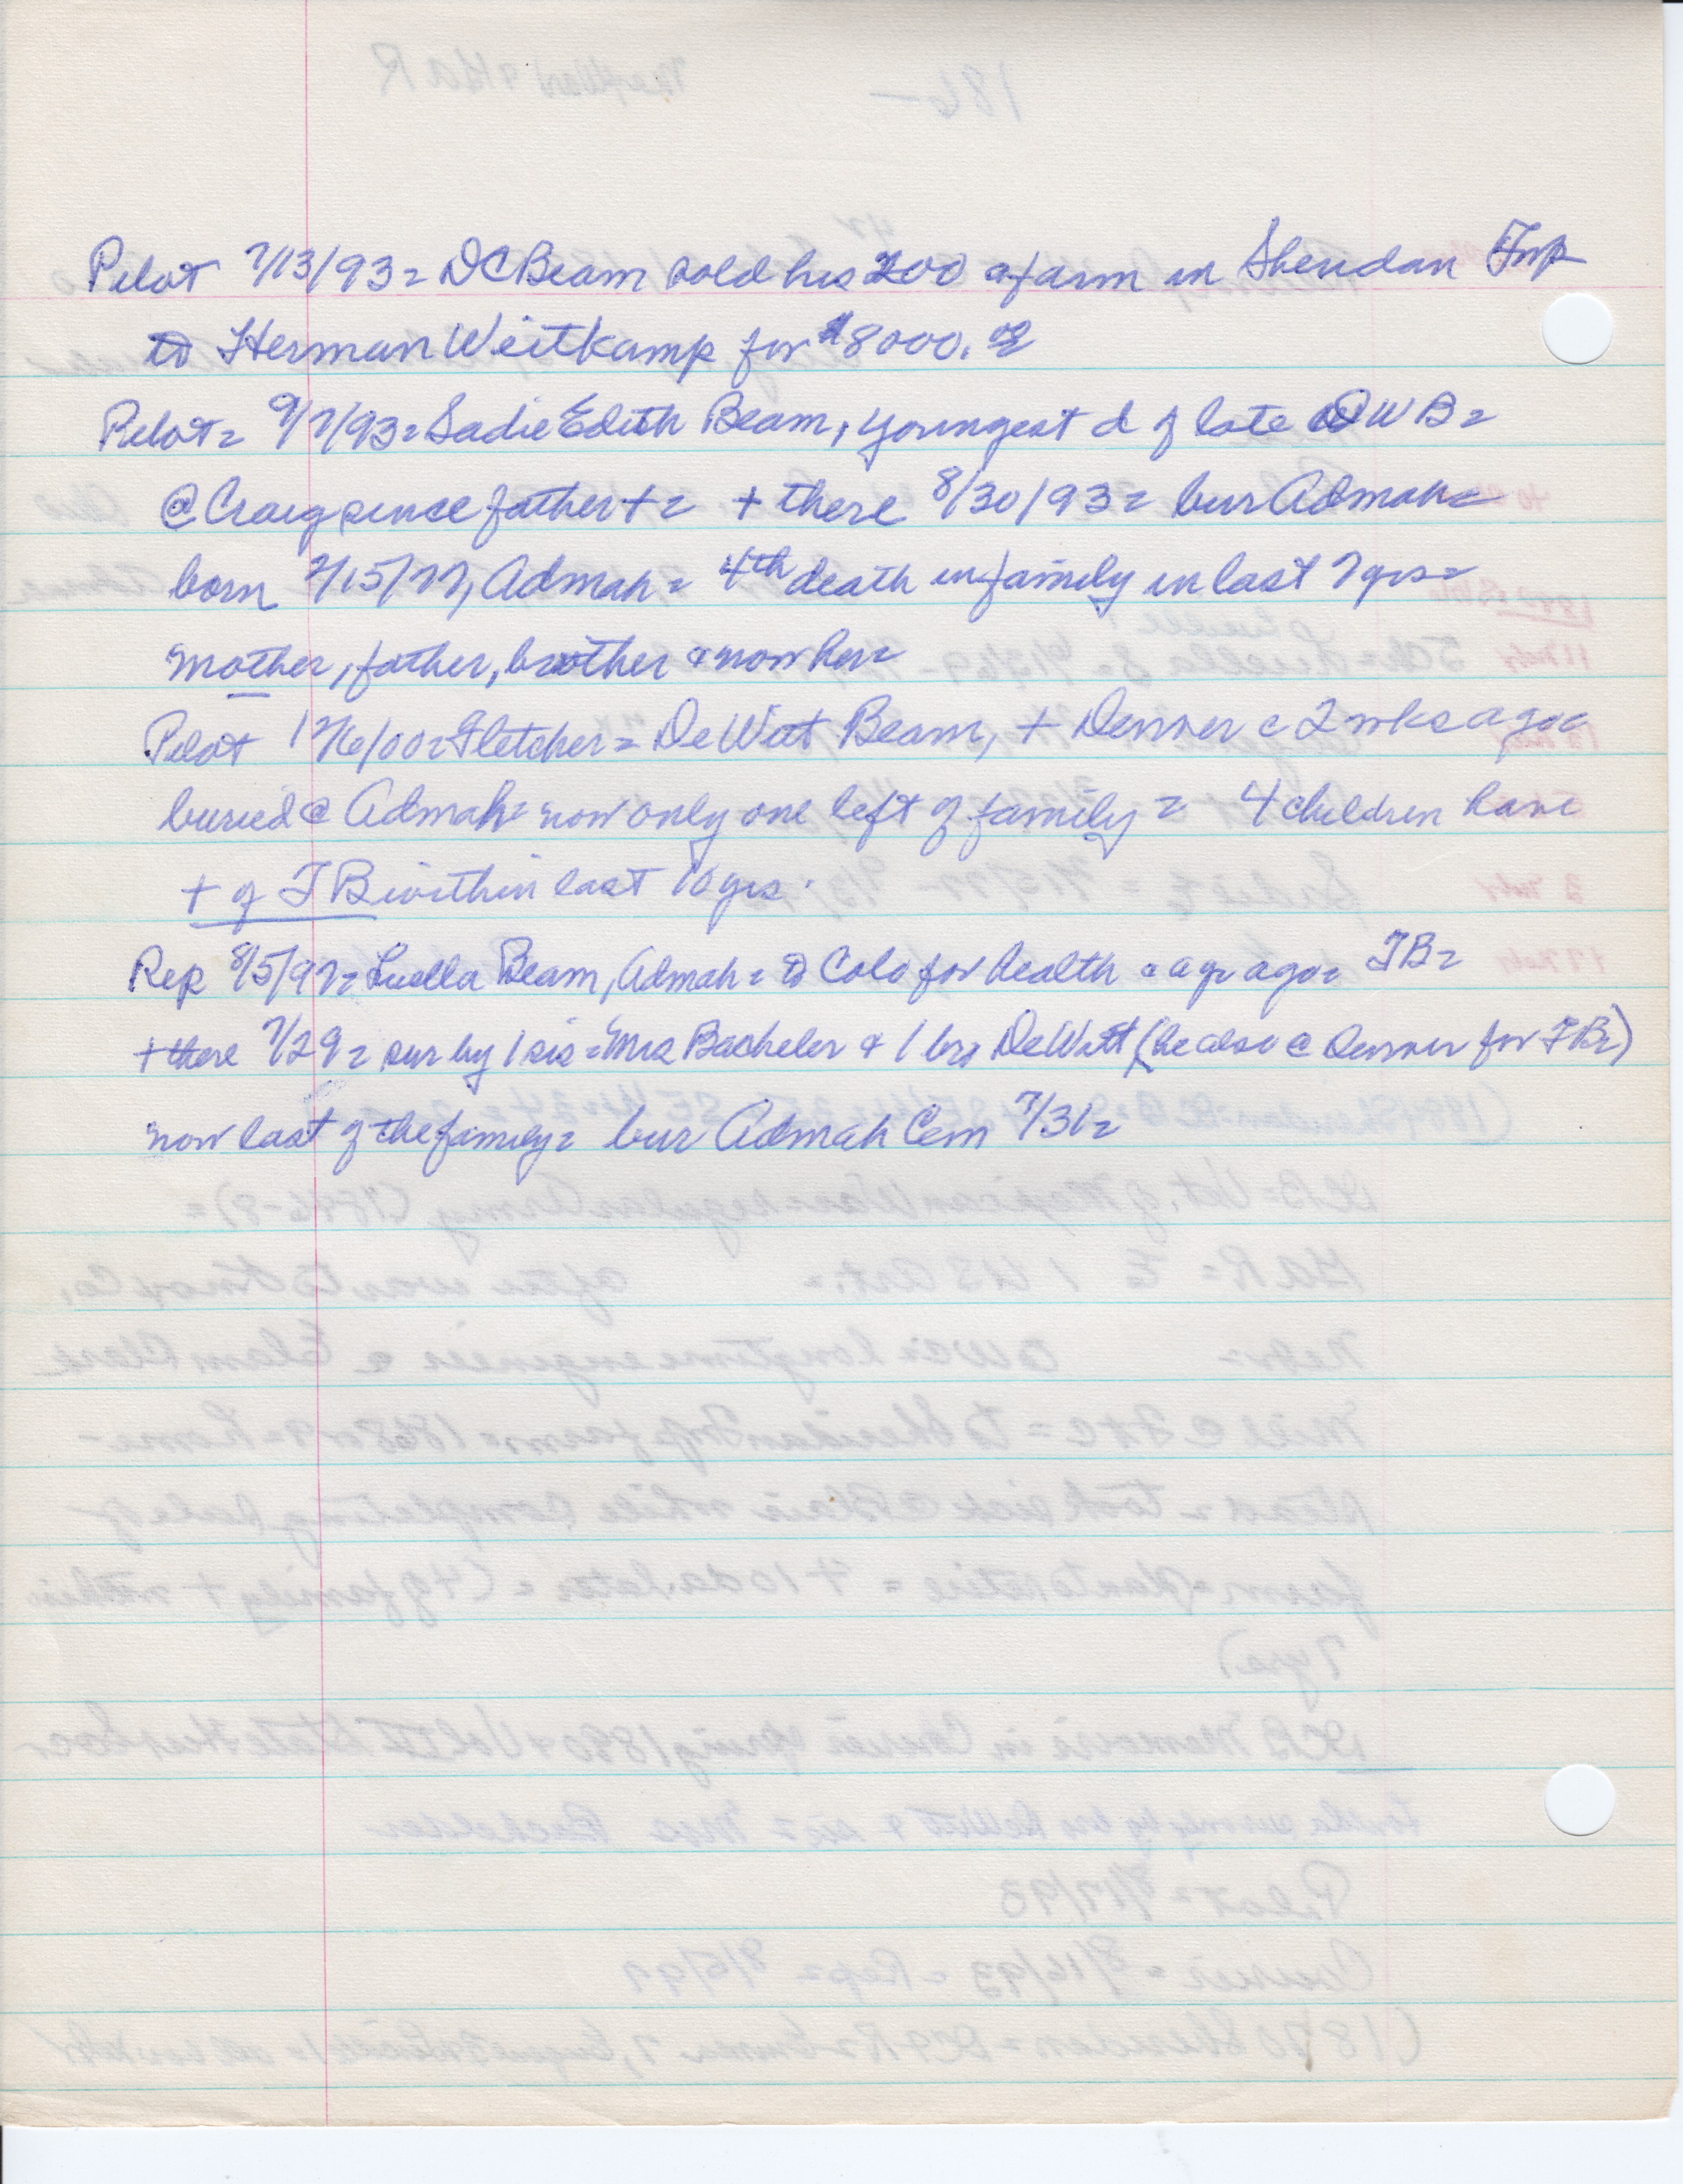 Pilot 7/13/93 = DC Beam sold his 200 a farm in Sheridan Twp
to Herman Weitkamp for $8000.00
Pilot = 9/7/93 = Sadie Edith Beam, youngest d of late DWB =
@ Craig since father + = + there 8/30/93 = bur Admah =
born 7/15/77, Admah = 4th death in family in last 7 yrs =
mother, father, brother & now her =
Pilot 12/6/00 = Fletcher = DeWitt Beam, + Denver c 2 wks ago =
buried @ Admah = now only one left of family = 4 children have
+ of TB within last 10 yrs.
Rep 8/5/97 = Luella Beam, Admah = to Colo for health c a yr ago = TB =
+ there 7/29 = sur by 1 sis = Mrs Bacheler & 1 bro DeWitt (he also @ Denver for TB =)
now last of the family = bur Admah Cem 7/31 =